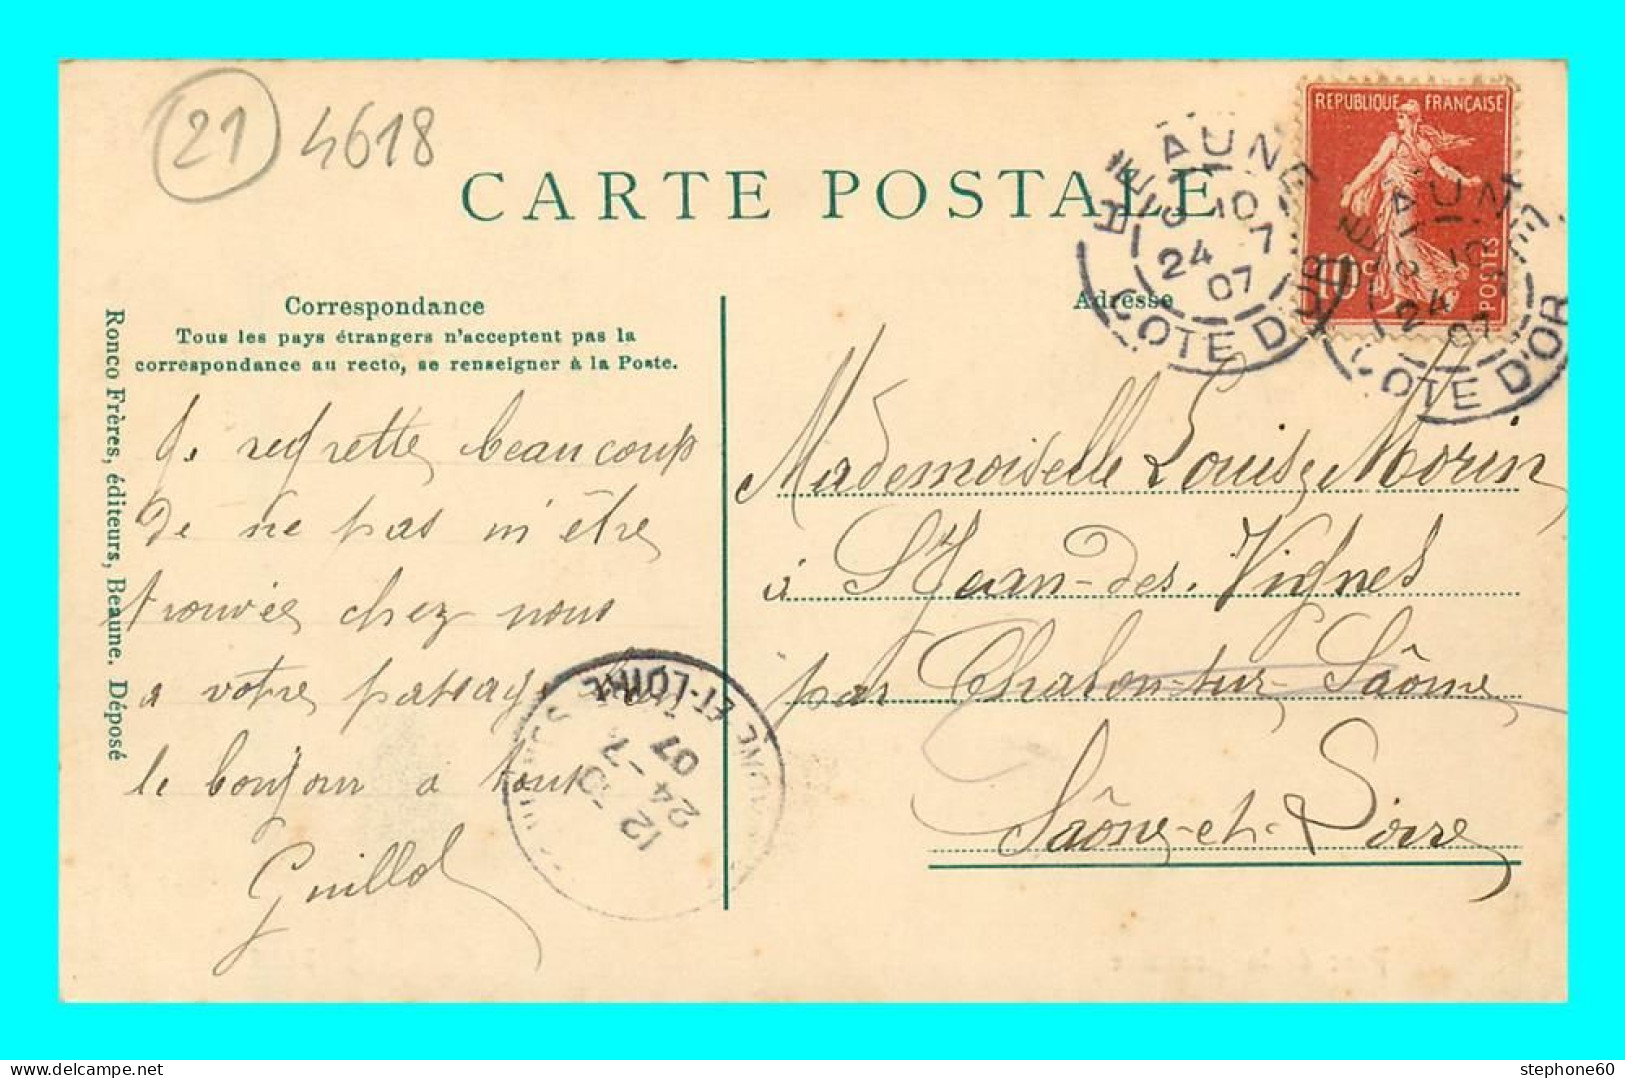 21 4618
CARTE POSTALE
REPUBLIQUE FRANÇAISE
10c
POSTES
BEAUNE
10
24 7
07
COTE D'OR
BEAUNE
24
07
COTE D'OR
Correspondance
Tous les pays étrangers n'acceptent pas la
correspondance au recto, se renseigner à la Poste.
Adresse
Ronco Frères, éditeurs, Beaune. Déposé
Je regrette beaucoup
de ne pas m'être
trouvée chez nous
a votre passage
le bonjour a tous
Guillot
ET-LOIRE
12
24 - 7
07
Mademoiselle Louise Morin
à St Jean-des-Vignes
par Chalon-sur-Saône
Saône-et-Loire
stephone60